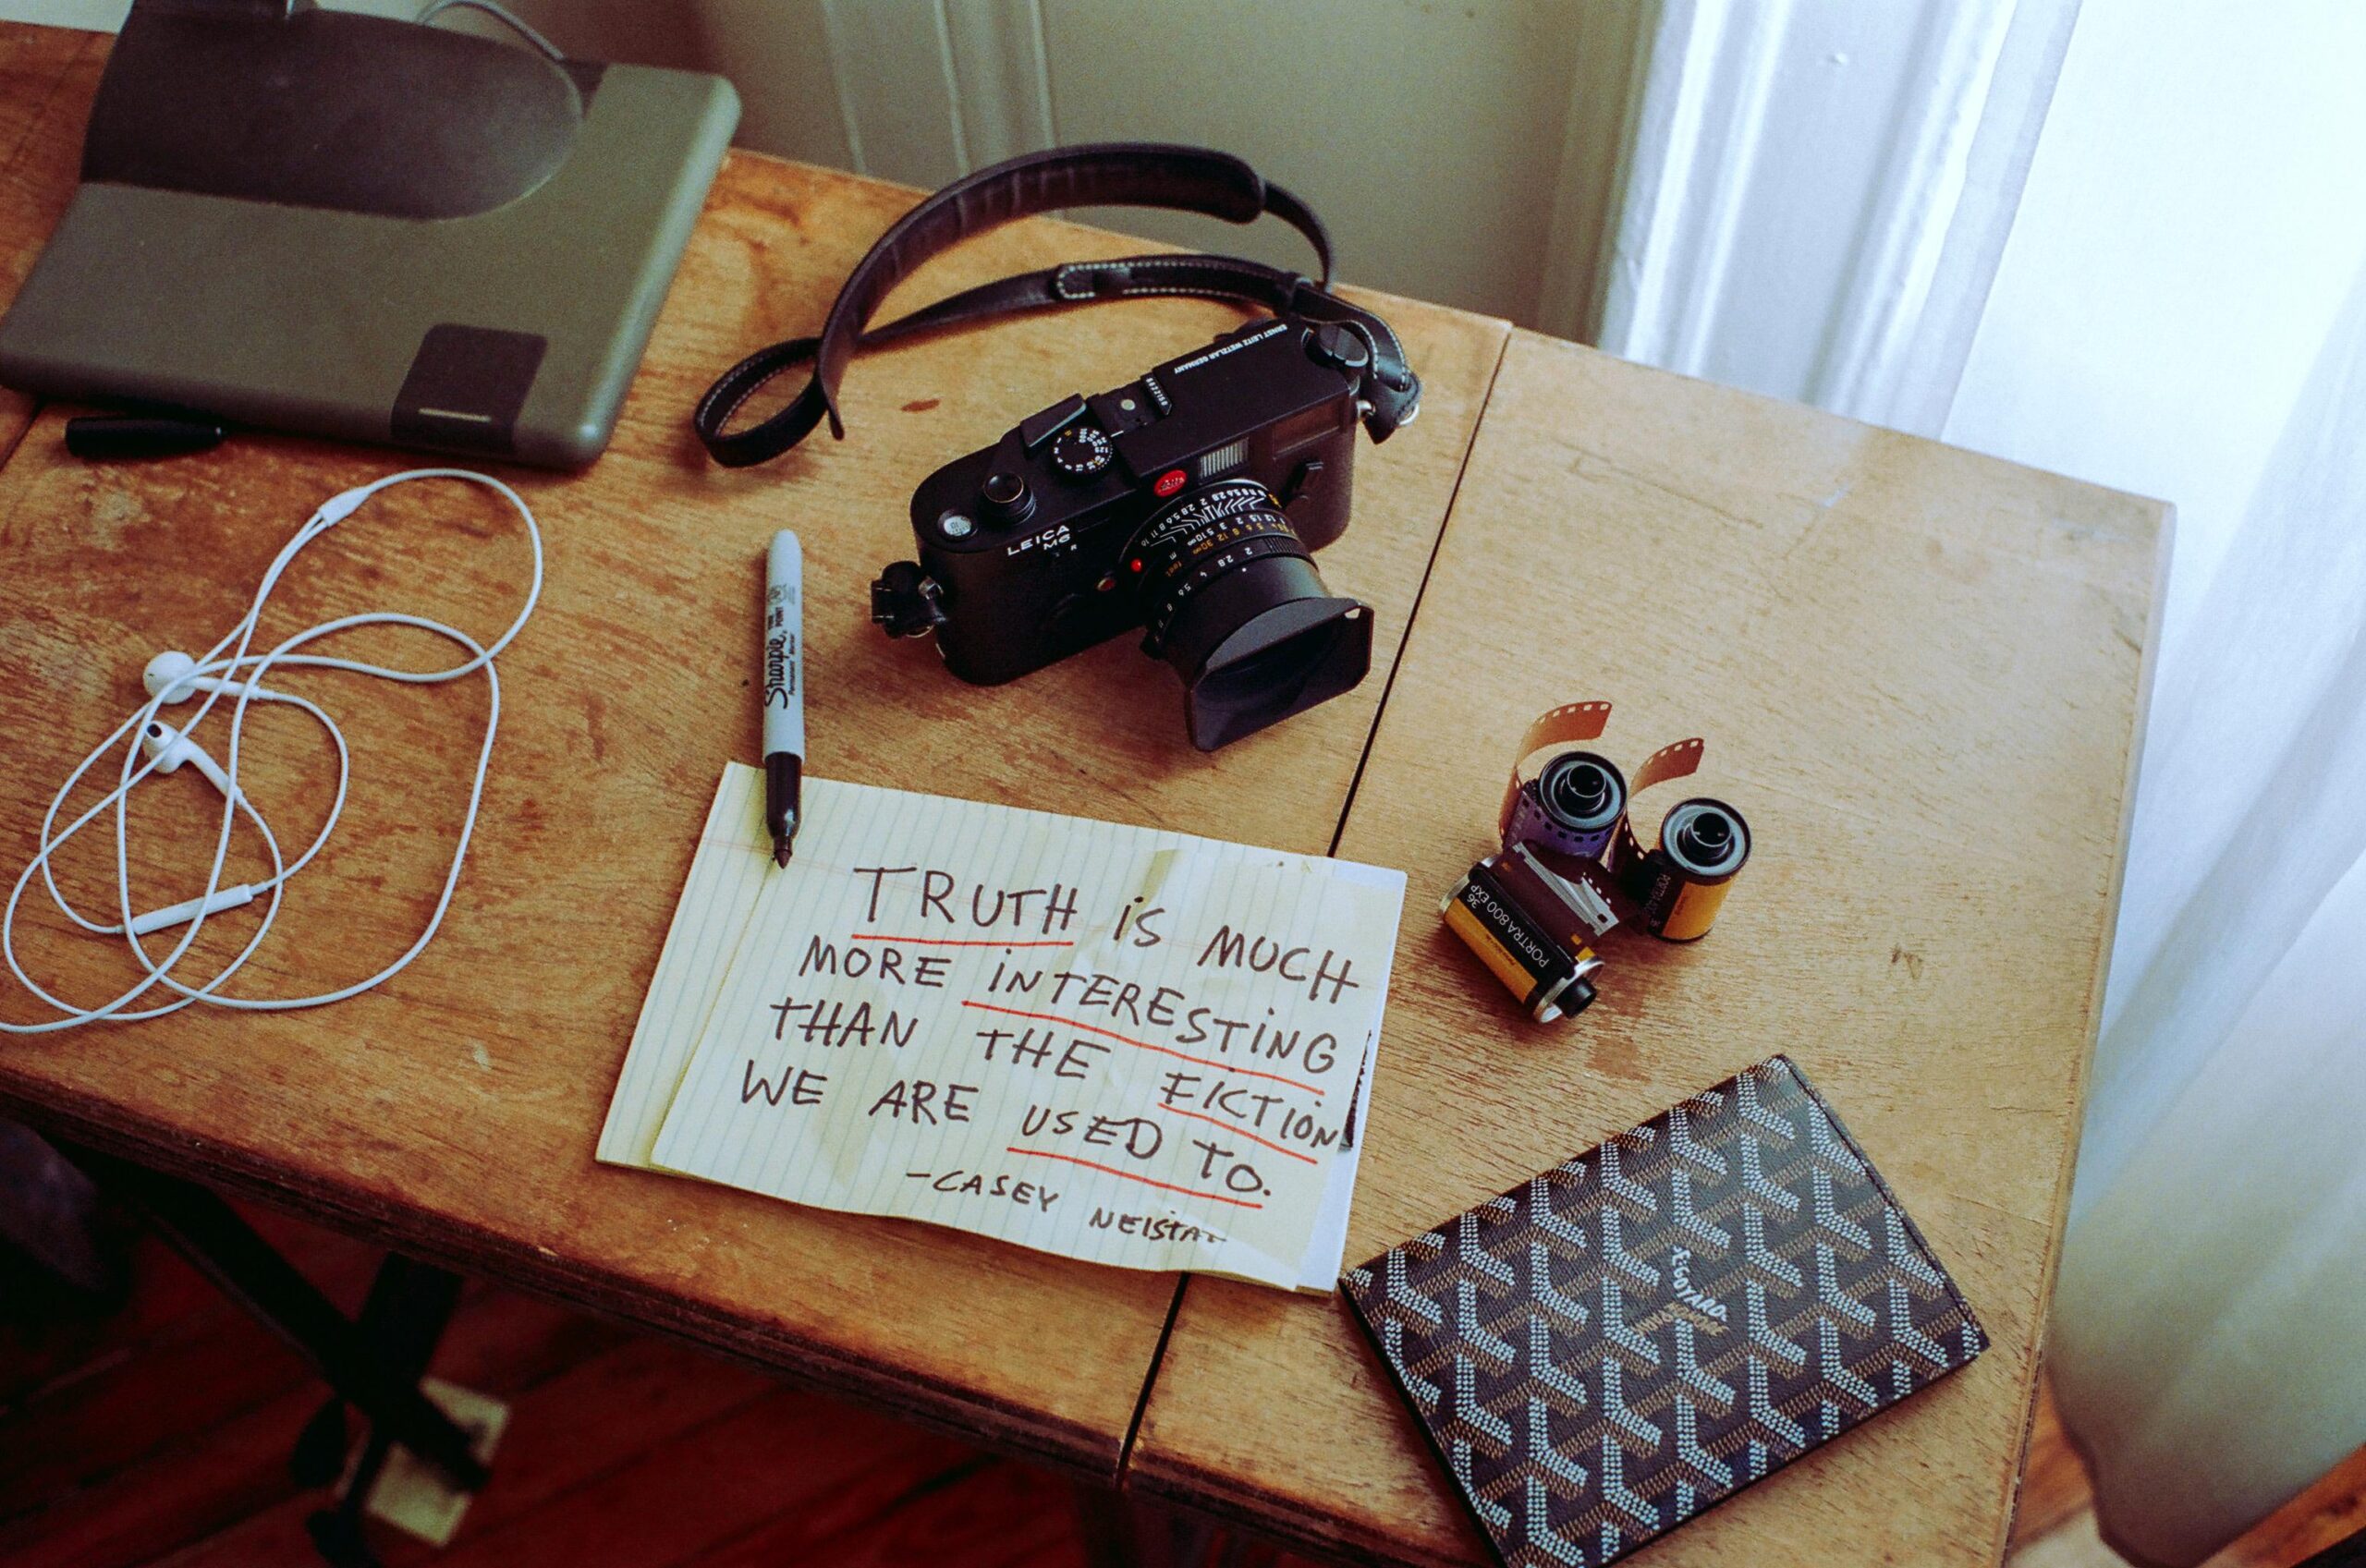 ERNST LEITZ WETZLAR GERMANY
LEICA
M6
Sharpie
FINE
POINT
Permanent Marker
TRUTH iS MUCH
MORE iNTERESTiNG
THAN THE FICTION
WE ARE USED TO.
-CASEY NEISTAT
36
PORTRA 800 EXP
GOYARD